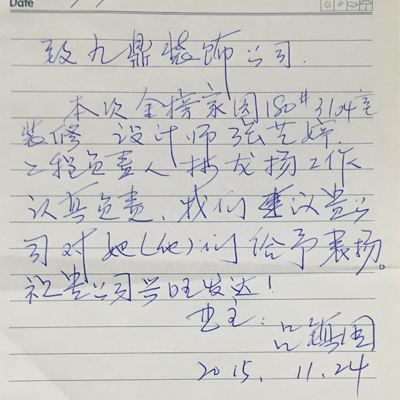 Date
致九鼎装饰公司.
本次金榜家园180#3104室
装修 设计师张芝婷
工程负责人林龙扬工作
认真负责,我们建议贵公
司对她(他)们给予表扬。
祝贵公司兴旺发达!
业主:
吕 国
2015. 11.24